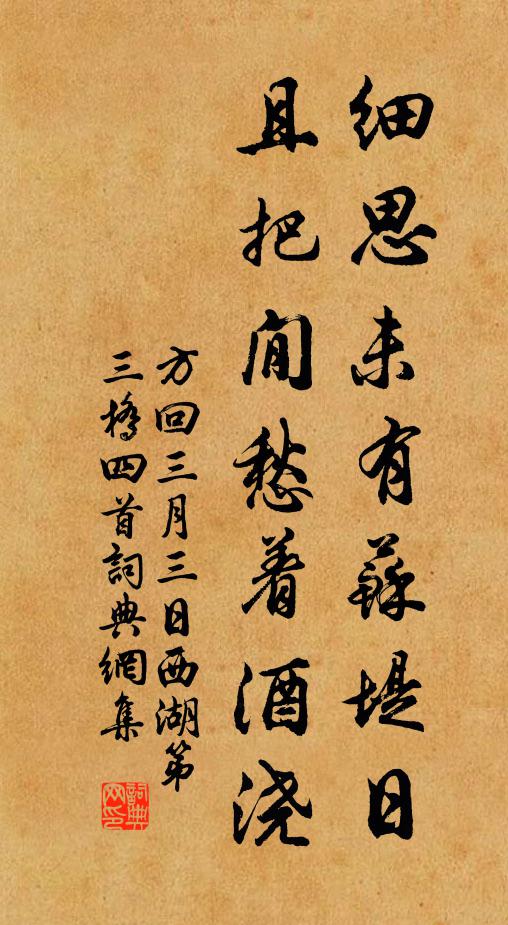 细思未有蘇堤日
且把閒愁着酒浇
方回三月三日西湖第
三橋四首詞典網集
詞典
网印